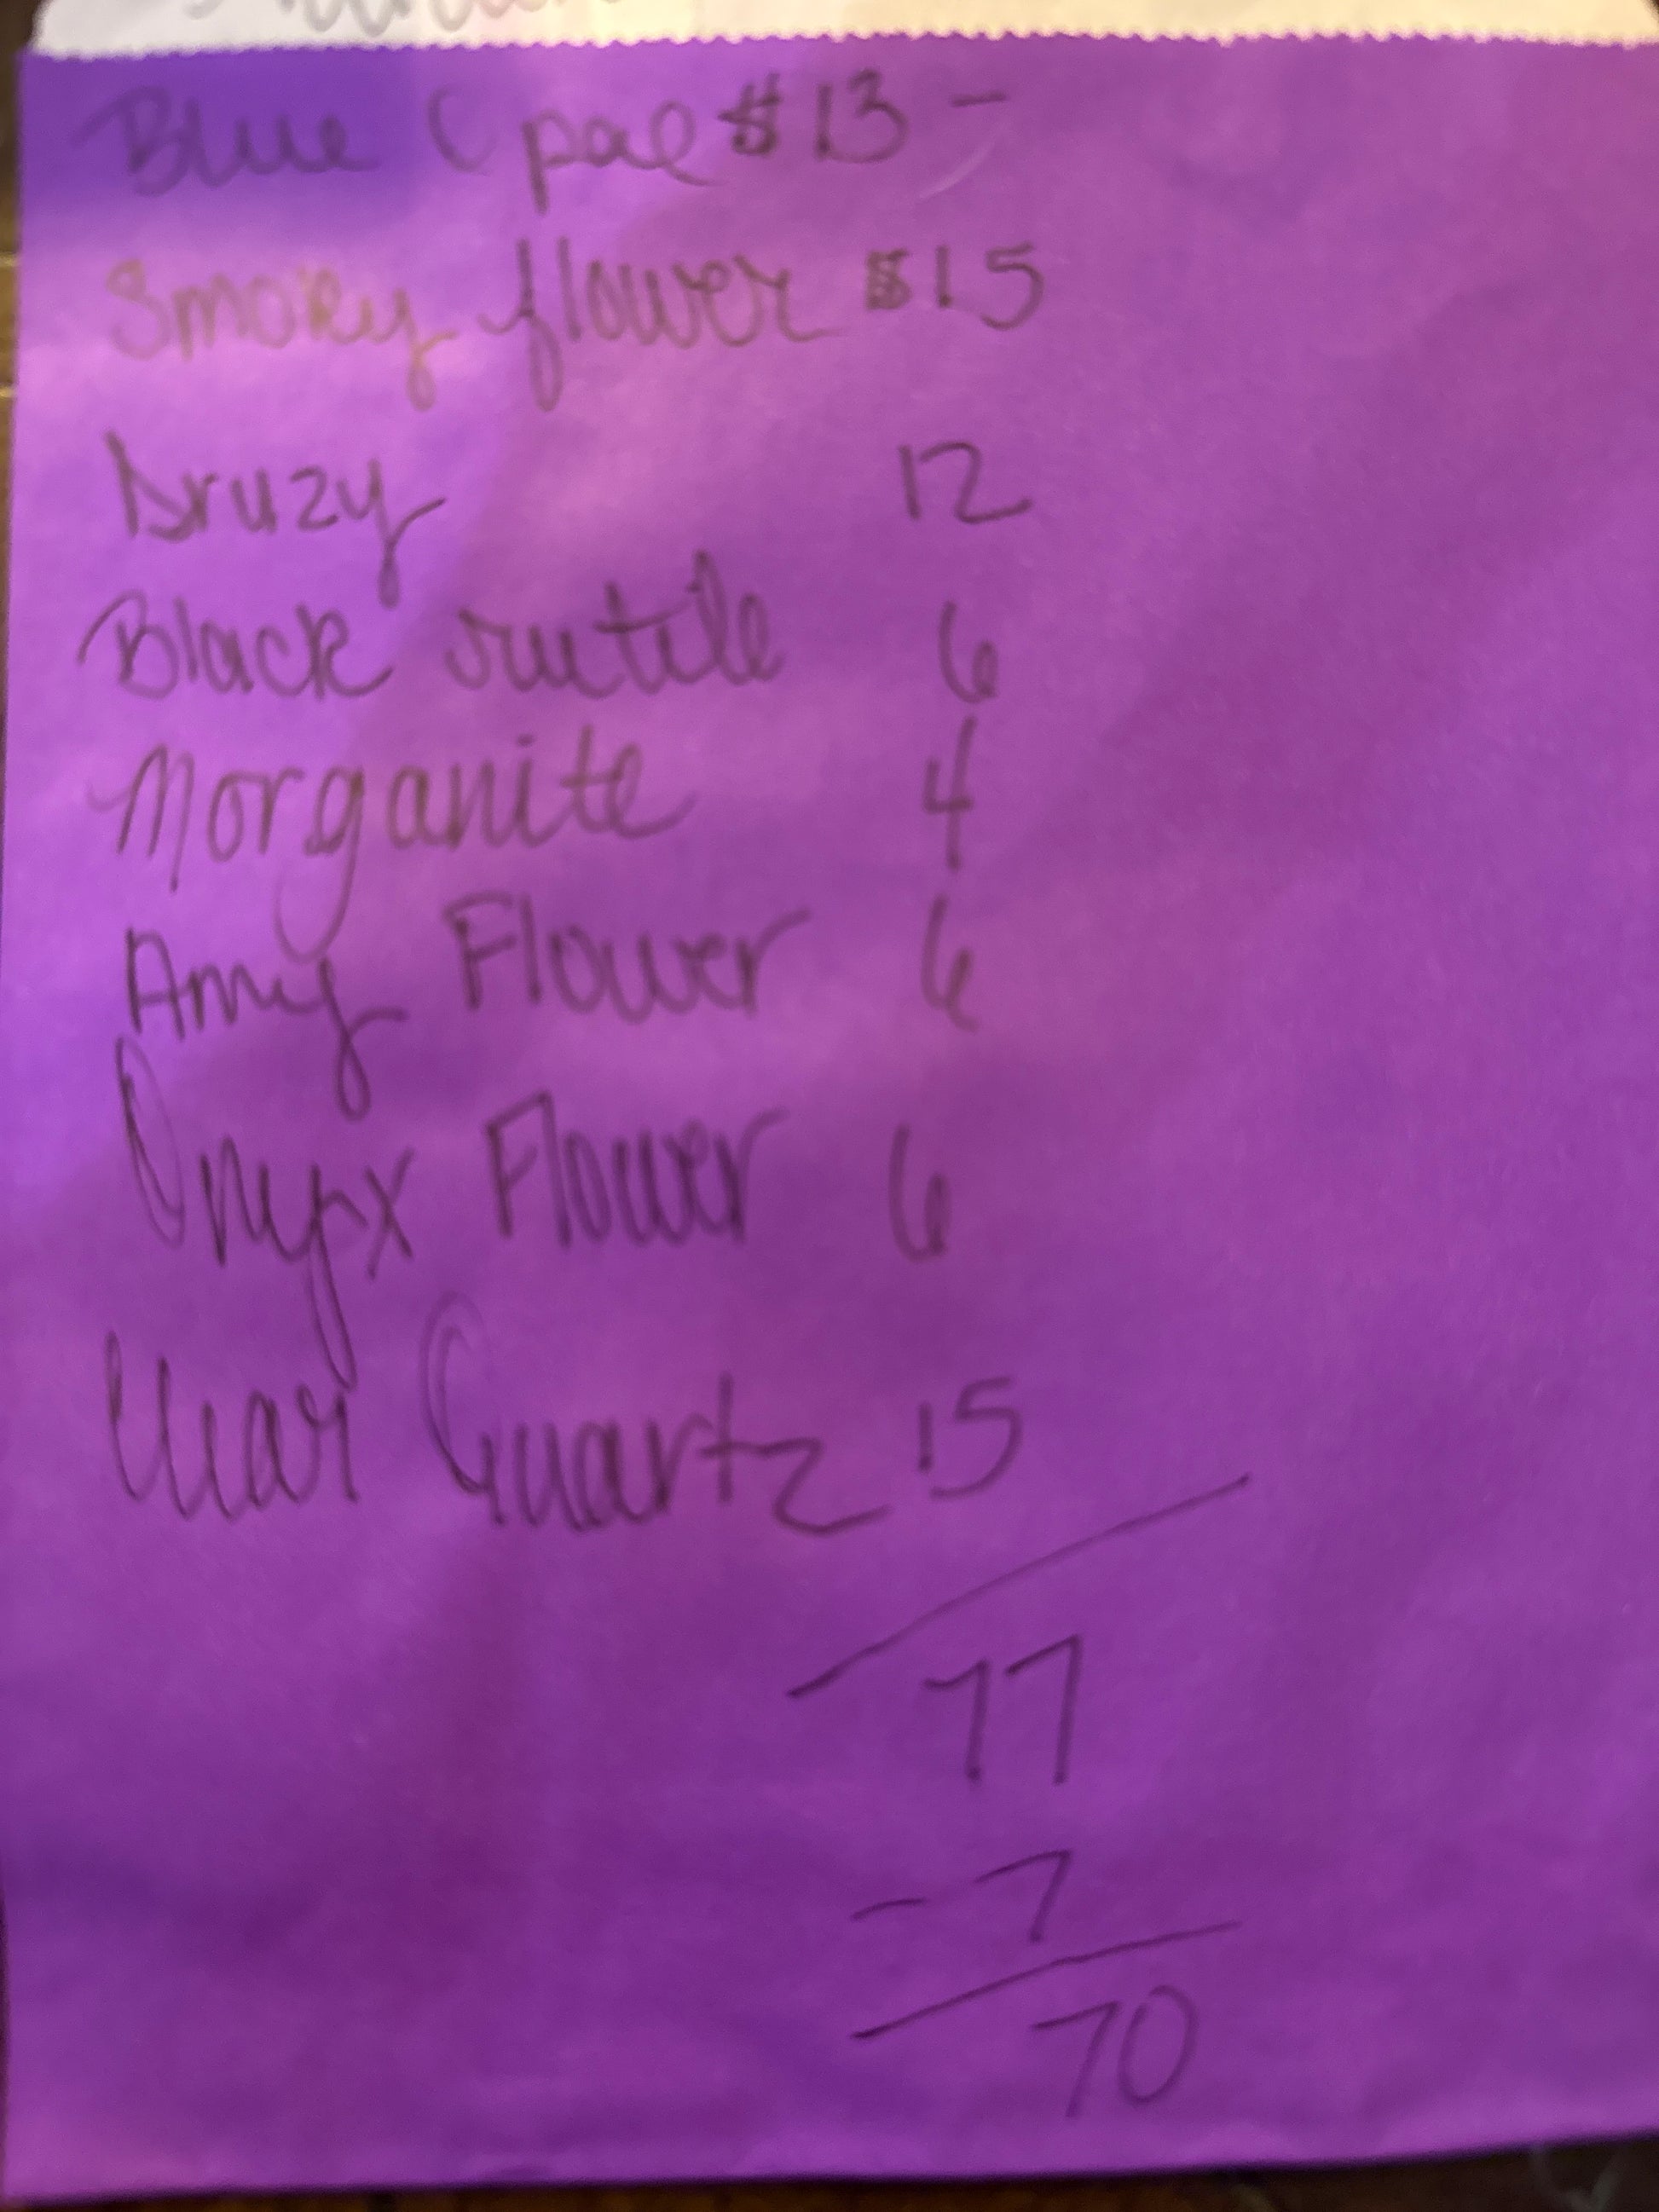 Blue Opal $13 -
Smoky flower $15
Druzy 12
Black rutile 6
Morganite 4
Amy Flower 6
Onyx Flower 6
Clear Quartz 15
77
-7
70